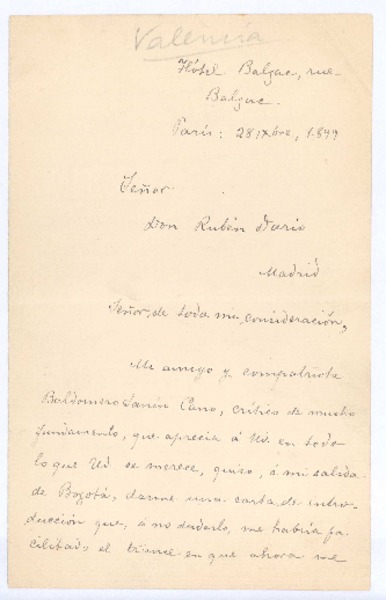 Valencia
Hótel Balzac, rue
Balzac.
París: 28, Xbre, 1899
Señor
Don Rubén Darío
Madrid
Señor, de toda mi consideración,
Mi amigo y compatriota
Baldomero Sanín Cano, crítico de mucho
fundamento, que aprecia á Ud. en todo
lo que Ud. se merece, quiso, á mi salida
de Bogotá, darme una carta de intro-
ducción que, á no dudarlo, me habría fa-
cilitado el trance en que ahora me